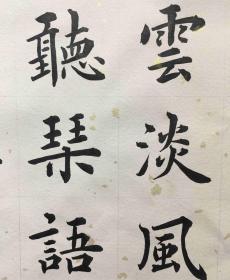 雲淡風
聽琹語